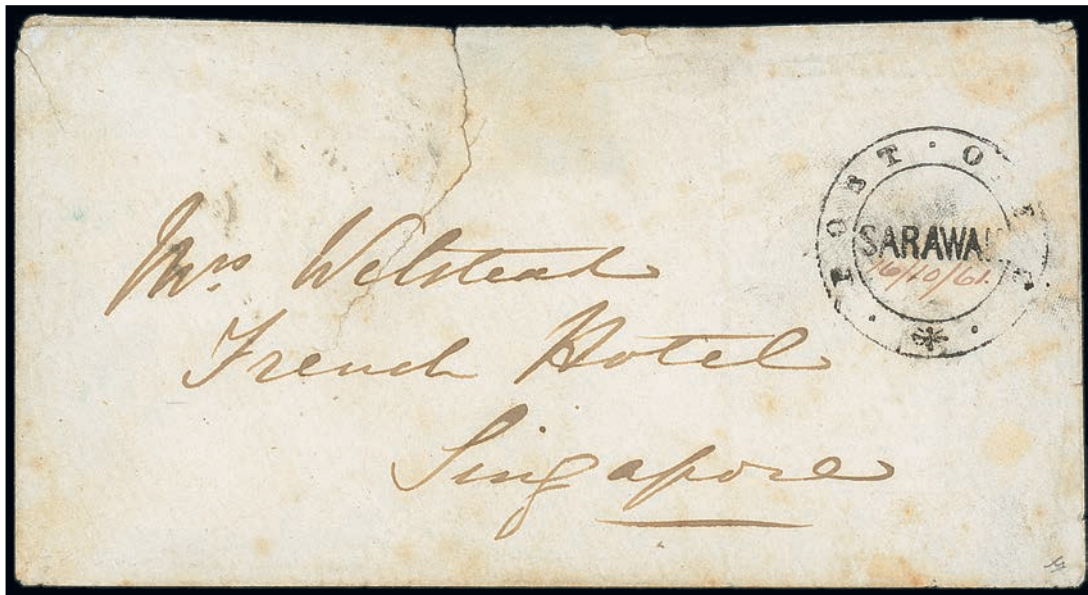 POST · O
SARAWA
16/10/61.
Mrs Welstead
French Hotel
Singapore